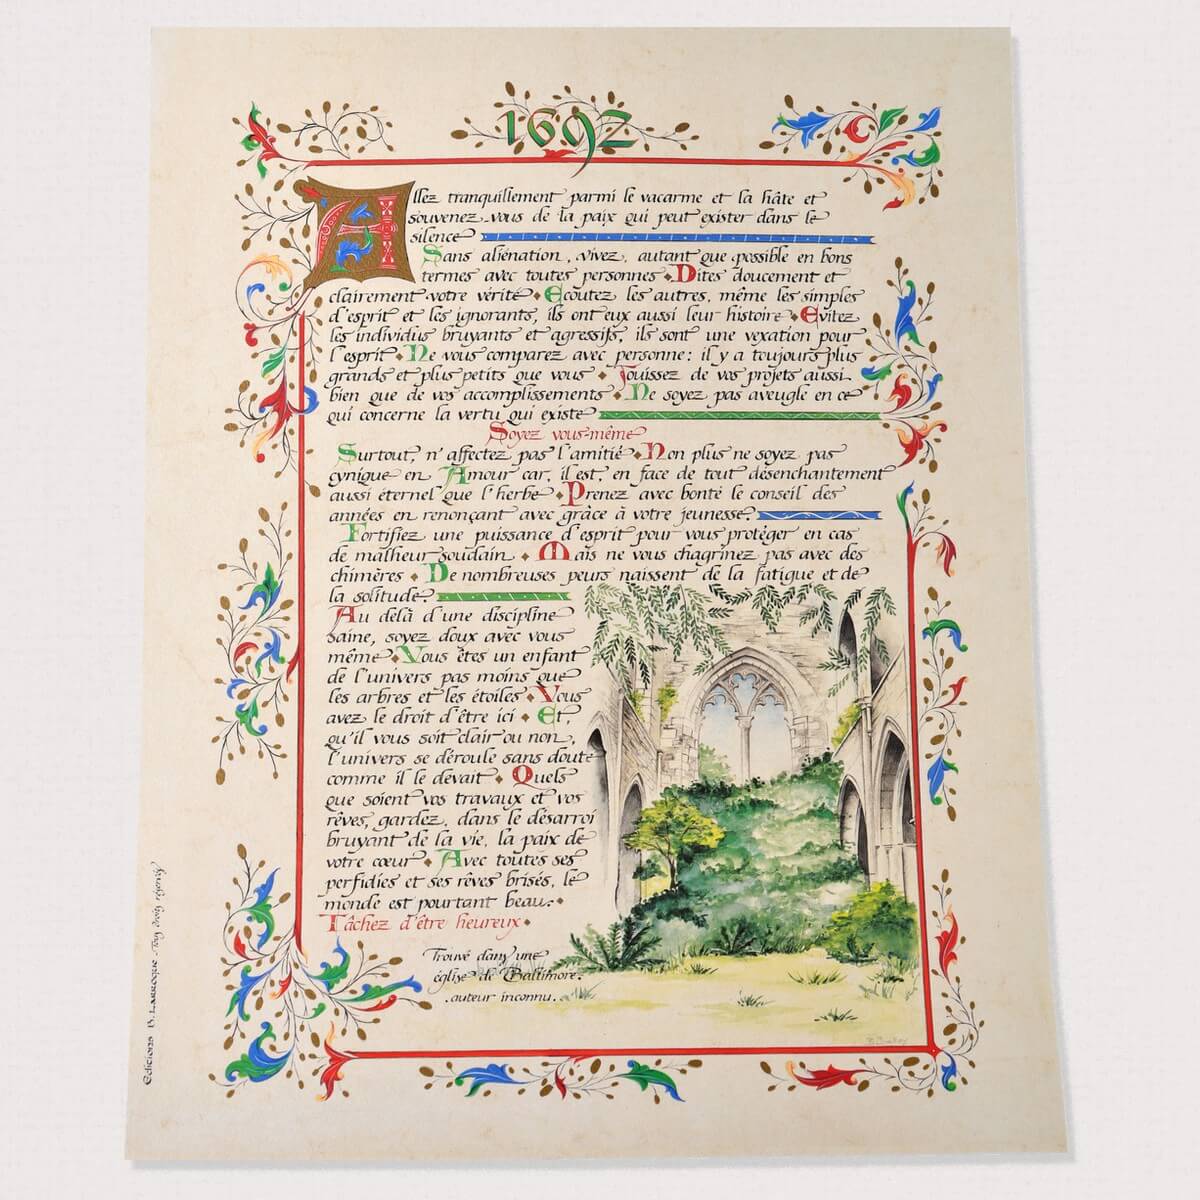 1692
Allez tranquillement parmi le vacarme et la hâte et
souvenez-vous de la paix qui peut exister dans le
silence
Sans aliénation, vivez, autant que possible en bons
termes avec toutes personnes Dites doucement et
clairement votre vérité Ecoutez les autres, même les simples
d'esprit et les ignorants, ils ont eux aussi leur histoire Evitez
les individus bruyants et agressifs, ils sont une vexation pour
l'esprit Ne vous comparez avec personne: il y a toujours plus
grands et plus petits que vous Jouissez de vos projets aussi
bien que de vos accomplissements Ne soyez pas aveugle en ce
qui concerne la vertu qui existe
Soyez vous-même
Surtout, n'affectez pas l'amitié Non plus ne soyez pas
cynique en Amour car, il est, en face de tout désenchantement
aussi éternel que l'herbe Prenez avec bonté le conseil des
années en renonçant avec grâce à votre jeunesse.
Fortifiez une puissance d'esprit pour vous protéger en cas
de malheur soudain Mais ne vous chagrinez pas avec des
chimères De nombreuses peurs naissent de la fatigue et de
la solitude.
Au delà d'une discipline
saine, soyez doux avec vous
même Vous êtes un enfant
de l'univers pas moins que
les arbres et les étoiles Vous
avez le droit d'être ici Et,
qu'il vous soit clair ou non,
l'univers se déroule sans doute
comme il le devait Quels
que soient vos travaux et vos
rêves, gardez, dans le désarroi
bruyant de la vie, la paix de
votre cœur Avec toutes ses
perfidies et ses rêves brisés, le
monde est pourtant beau.
Tâchez d'être heureux
Trouvé dans une
église de Baltimore.
auteur inconnu.
Editions B. LARROQUE Tous droits réservés